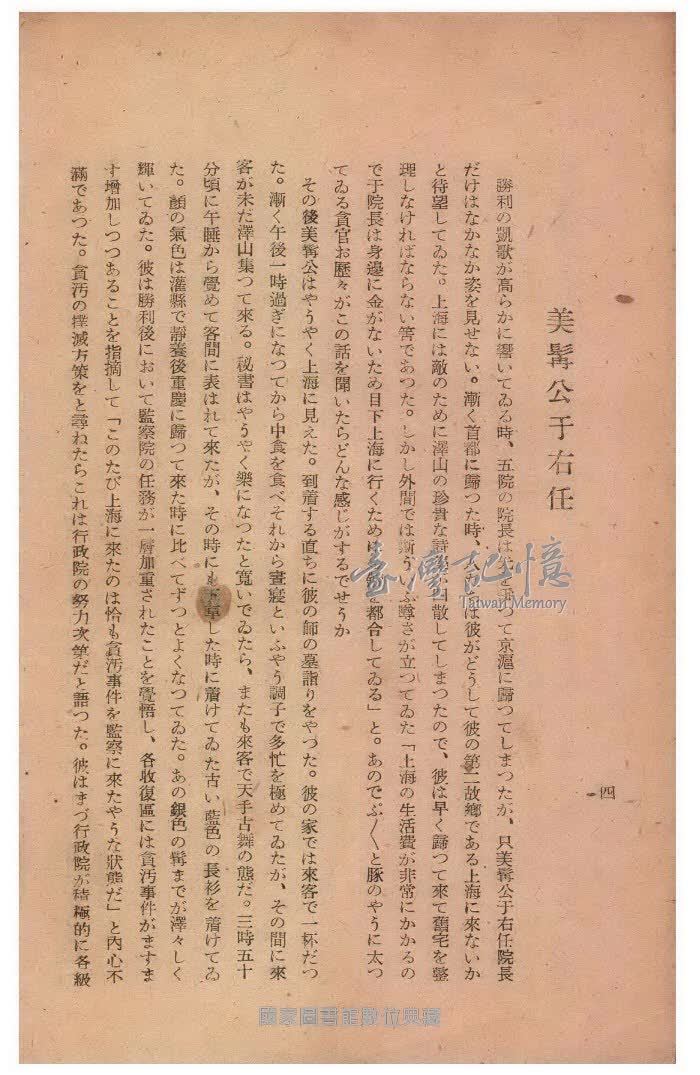 美髯公于右任
勝利の凱歌が高らかに響いてゐる時、五院の院長は先を爭つて京滬に歸つてしまつたが、只美髯公于右任院長
だけはなかなか姿を見せない。漸く首都に歸つた時、人々は彼がどうして彼の第二故鄕である上海に來ないか
と待望してゐた。上海には敵のために澤山の珍貴な詩 四散してしまつたので、彼は早く歸つて來て舊宅を整
理しなければならない筈であつた。しかし外間では斯ういふ噂さが立つてゐた「上海の生活費が非常にかかるの
で于院長は身邊に金がないため目下上海に行くために 都合してゐる」と。あのでぶ〳〵と豚のやうに太つ
てゐる貪官お歷々がこの話を聞いたらどんな感じがするでせうか
その後美髯公はやうやく上海に見えた。到着する直ちに彼の師の墓詣りをやつた。彼の家では來客で一杯だつ
た。漸く午後一時過ぎになつてから中食を食べそれから晝寢といふやう調子で多忙を極めてゐたが、その間に來
客が未だ澤山集つて來る。秘書はやうやく樂になつたと寬いでゐたら、またも來客で天手古舞の態だ。三時五十
分頃に午睡から覺めて客間に表はれて來たが、その時にも下車した時に着けてゐた古い藍色の長衫を着けてゐ
た。顏の氣色は灌縣で靜養後重慶に歸つて來た時に比べてずつとよくなつてゐた。あの銀色の髯までが澤々しく
輝いてゐた。彼は勝利後において監察院の任務が一層加重されたことを覺悟し、各收復區には貪汚事件がますま
す增加しつつあることを指摘して「このたび上海に來たのは恰も貪汚事件を監察に來たやうな狀態だ」と內心不
滿であつた。貪汚の撲滅方策をと尋ねたらこれは行政院の努力次第だと語つた。彼はまづ行政院が積極的に各級
四
臺灣記憶
Taiwan Memory
國家圖書館數位典藏